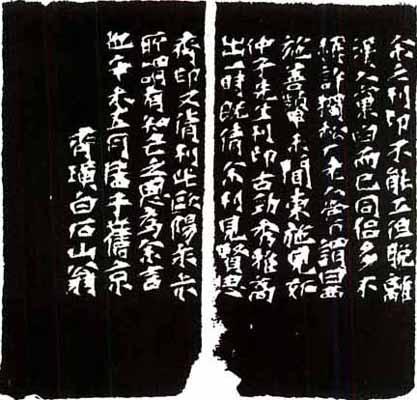 余之刊印不能工但脱離
漢人窠臼而已同侣多不
稱許獨松厂老人嘗謂曰西
施善顰未聞東施見妒
仲子先生刊印古勁秀雅高
出一時既倩余刊見賢思
齊印又倩刊此歐陽永叔
所謂有知己之恩爲余言
也辛未五月居于舊京
齊璜白石山翁